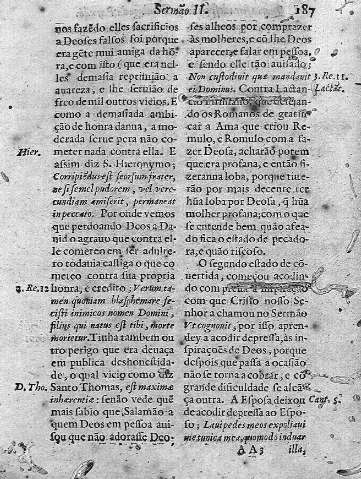 Sermão II. 187
nos fazẽdo elles sacrificios
a Deoses falsos foi porque
era gẽte mui amiga da hõ-
ra, e com isto (que era nel-
les demasia reprinaõ a
auareza, e lhe seruião de
freo de mil outros vicios. E
como a demasiada ambi-
ção de honra danna, a mo-
derada serue pera não co-
meter nada contra ella. E
Hier. assim diz S. Hieronymo;
Corripiẽdus est seorsum frater,
ne si semel pudorem, vel vere-
cundiam amiserit, permaneat
in peccato. Por onde vemos
que perdoando Deos a Da-
uid o agrauo que contra el-
le comerem em ser adulte-
ro todauia castiga o que co-
meteo contra sua propria
2. Re. 12 honra, e credito; Verum ta-
men quoniam blasphemare fe-
cisti inimicos nomen Domini,
filius qui natus est tibi, morte
morietur. Tinha tambem ou
tro perigo que era deuaça
em publica deshonestida-
de, o qual vicio como diz
D. Tho. Santo Thomas, est maximæ
inhærentiæ: senão vede quẽ
mais sabio que Salamão a
quem Deos em pessoa aui-
sou que não adorasse Deo-
ses alheos por comprazer
às molheres, e cõ lhe Deos
aparecer, e falar em pessoa,
e sendo elle tão auisado;
Non custodiuit quæ mandauit 3. Re. 11.
ei Dominus. Contra Lactan Lactãc.
cio Firmiano, que desejan-
do os Romanos de gratifi-
car a Ama que criou Re-
mulo, e Romulo com a fa-
zer Deosa, acharão porem
que era profana, e então fi-
zeranna loba, porque tiue-
rão por mais decente ter
hũa loba por Deosa, q̃ hũa
molher profana; com o que
se entende bem quão afea-
do fica o estado de pecado-
ra, e quão riscoso.
O segundo estado de cõ-
uertida, começou acodin-
do com
com que Christo nosso Se-
nhor a chamou no Sermão
Vt cognouit, por isso apren-
dey a acodir depressa, às in-
spirações de Deos, porque
despois que passa a ocasião
não se torna a cobrar, e cõ
grande dificuldade se alcã-
ça outra. A Esposa deixou Cant. 5.
de acodir depressa ao Espo-
so; Laui pedes meos expoliaui
me tunica mea, quomodo induar
A A 3 illa,